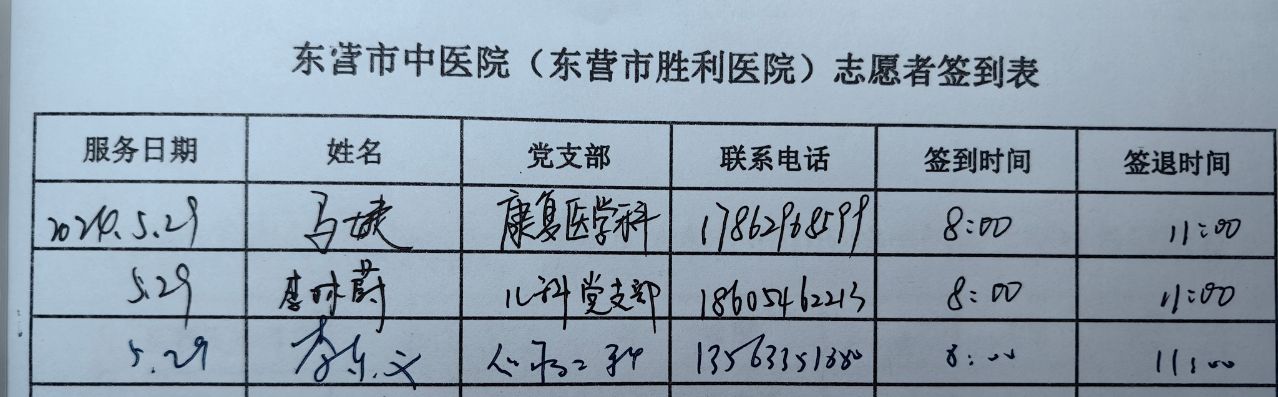 东营市中医院（东营市胜利医院）志愿者签到表
服务日期 姓名 党支部 联系电话 签到时间 签退时间
2024.5.29 马婕 康复医学科 17862968599 8:00 11:00
5.29 李林蔚 儿科党支部 18605462213 8:00 11:00
5.29 李东义 心病二科 13563351380 8:00 11:00